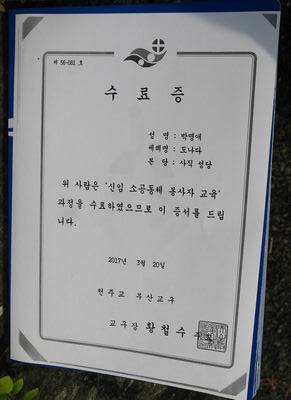 제 56-081 호
수 료 증
성 명 : 박명애
세례명 : 도나다
본 당 : 사직 성당
위 사람은 '신임 소공동체 봉사자 교육'
과정을 수료하였으므로 이 증서를 드립
니다.
2017년 3월 20일
천주교 부산교구
교구장 황철수 주교